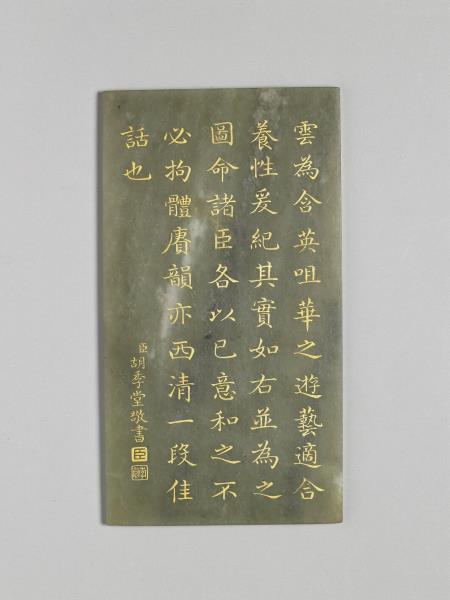 雲為含英咀華之遊藝適合
養性爰紀其實如右並為之
圖命諸臣各以己意和之不
必拘體賡韻亦西清一段佳
話也
臣胡季堂敬書
臣